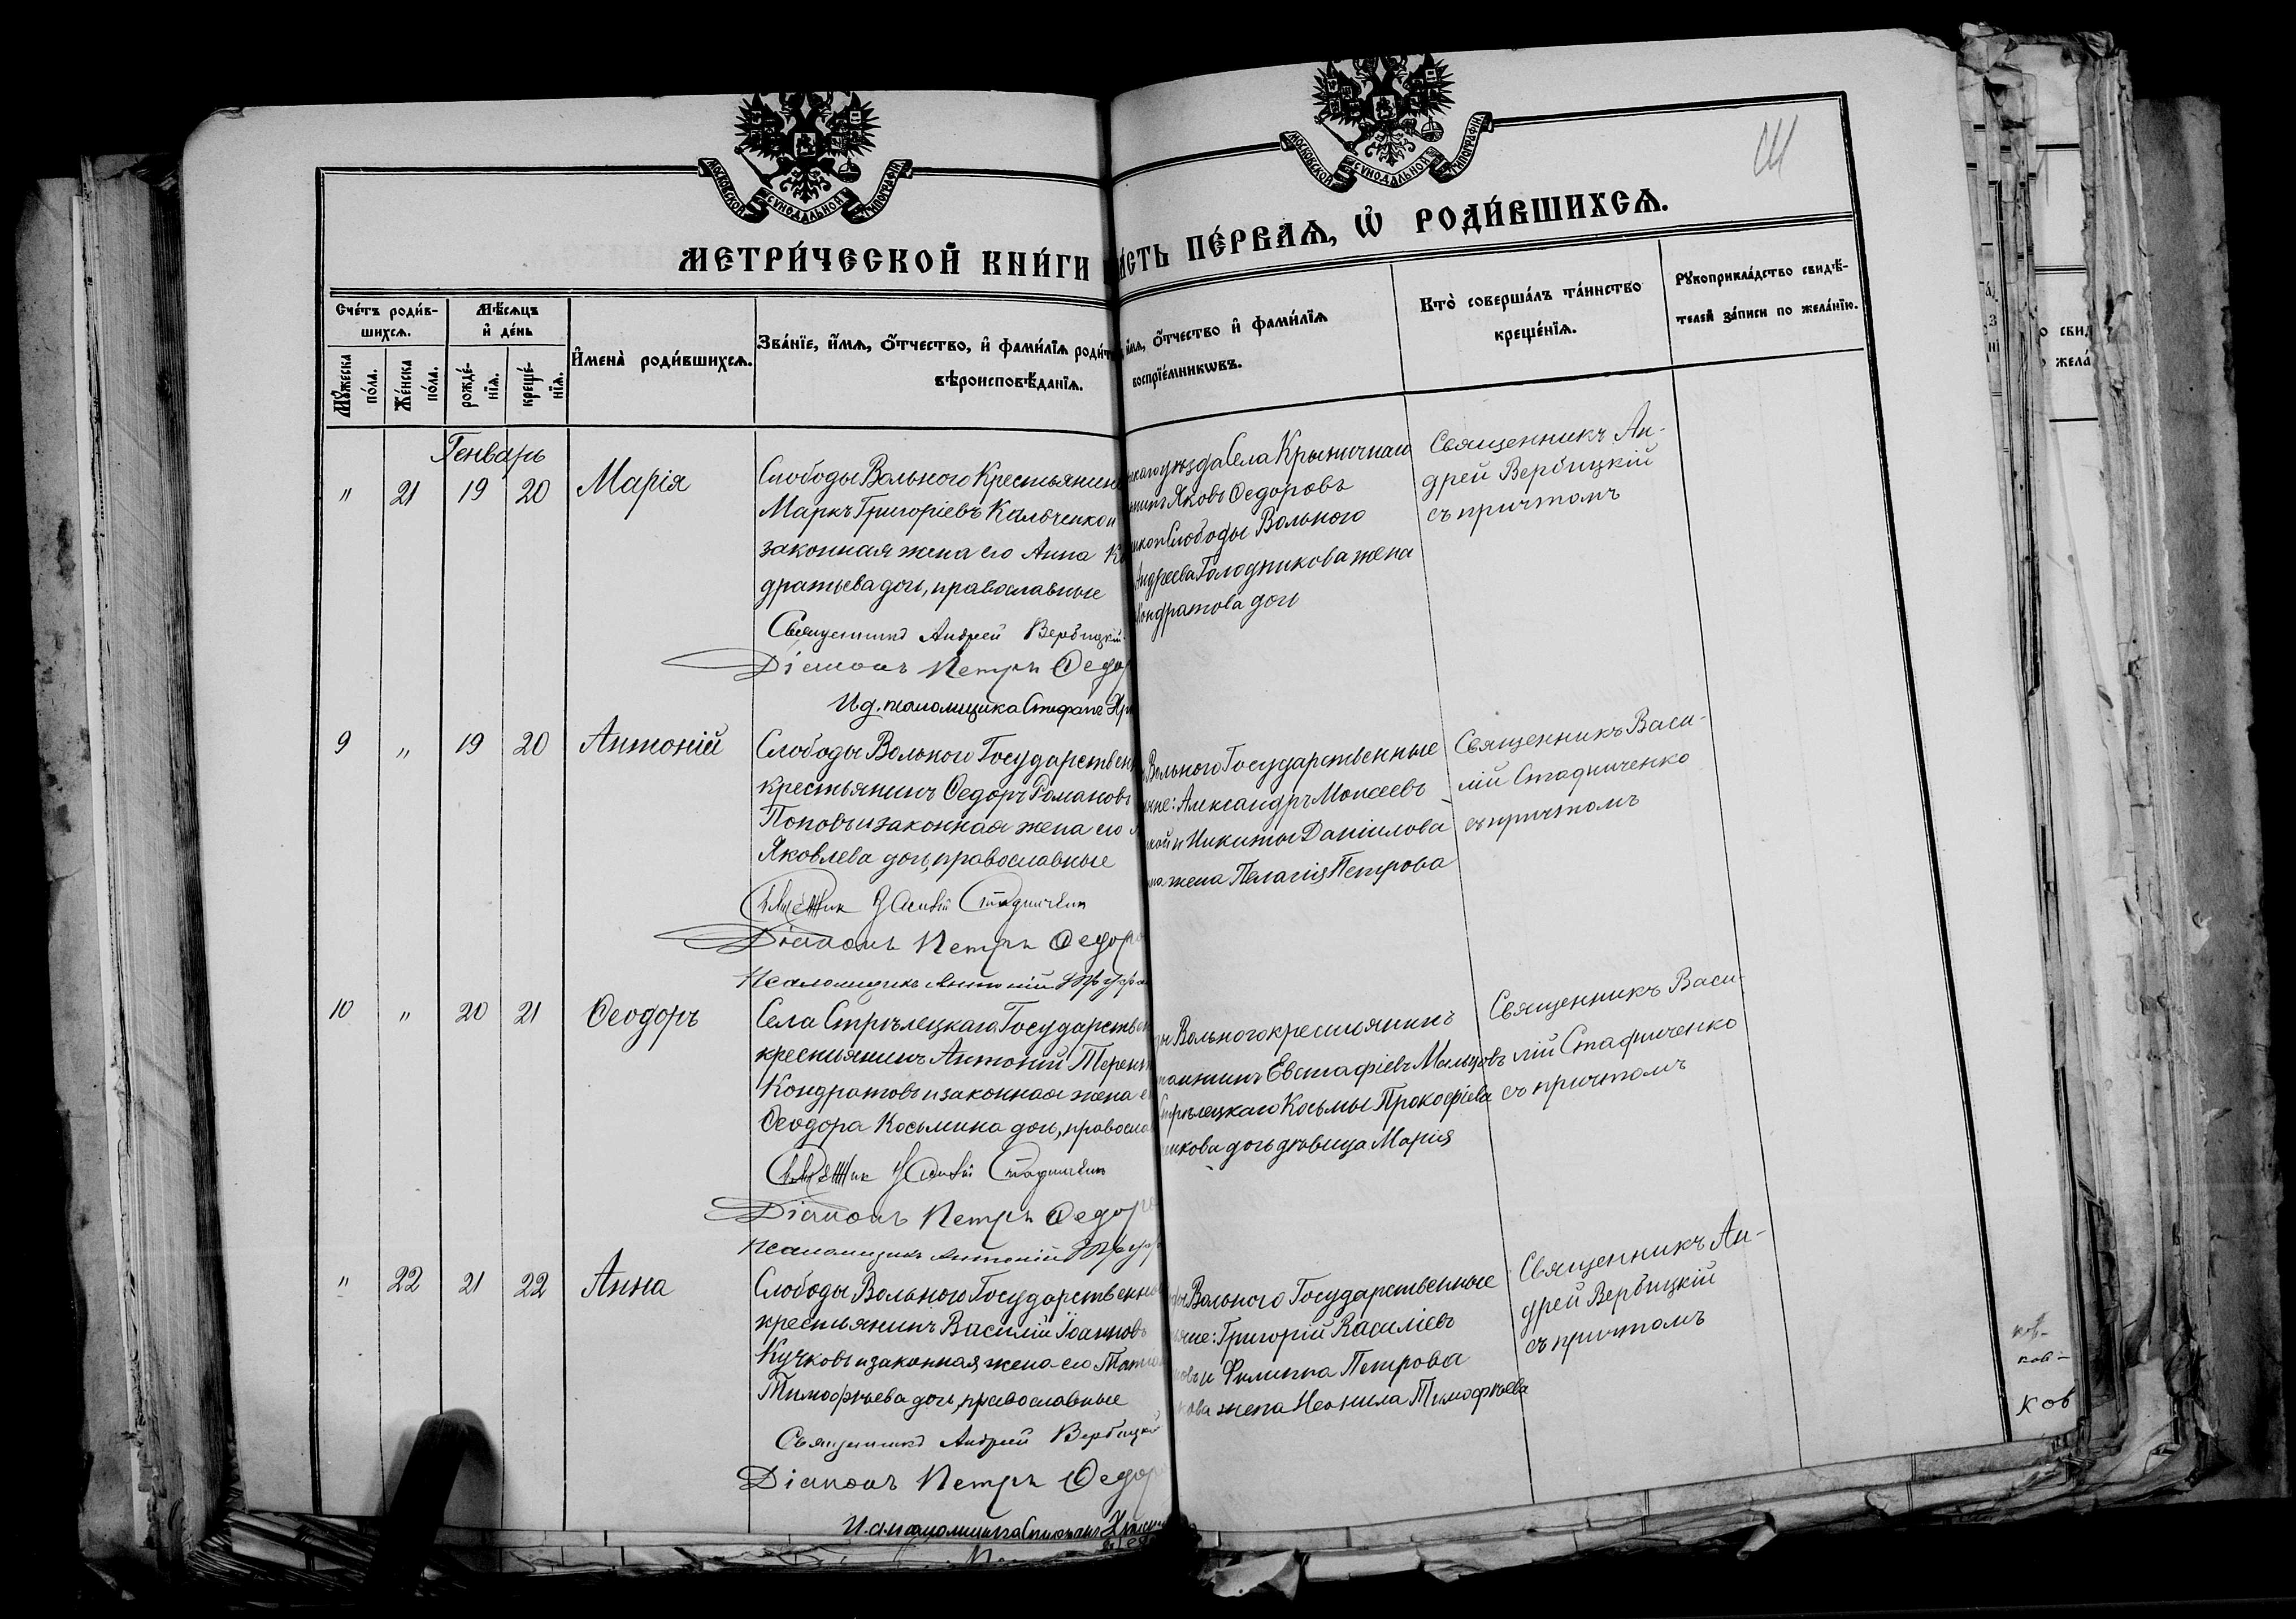 МОСКОВСКОЙ СѴНОДАЛЬНОЙ ТИПОГРАФІИ
МОСКОВСКОЙ СѴНОДАЛЬНОЙ ТИПОГРАФІИ
МЕТРИ́ЧЕСКОЙ КНИ́ГИ ЧА́СТЬ ПЕ́РВАѦ, Ѡ҆ РОДИ́ВШИХСѦ.
Сче́тъ роди́в-
шихсѧ.
Мѣ́сѧцъ
и҆ де́нь
И҆мена̀ роди́вшихсѧ.
Зва́нїе, и҆́мѧ, ѻ҆́тчество, и҆ фами́лїѧ роди́т
вѣроисповѣ́данїѧ.
и҆́мѧ, ѻ҆́тчество и҆ фами́лїѧ
воспрїе́мникѡвъ.
Кто̀ соверша́лъ та́инство
креще́нїѧ.
Рꙋкоприкла́дство свидѣ́-
телей за́писи по жела́нїю.
Мꙋ́жеска
по́ла.
Же́нска
по́ла.
рожде́-
нїѧ.
креще́-
нїѧ.
Генварь
" 21 19 20 Марія
Слободы Вольного Крестьянинъ
Маркъ Григоріевъ Кальченко и
законная жена его Анна Ко
дратьева дочь, православные
Священникъ Андрей Вербицкій
Діаконъ Петръ Ѳедор
И.д. псаломщика Стефанъ
уѣзда Села Крыничнаго
Яковъ Ѳедоровъ
Слободы Вольного
Андреева Голодникова жена
Кондратова дочь
Священникъ Ан-
дрей Вербицкій
съ причтомъ
9 " 19 20 Антоній
Слободы Вольного Государствен
крестьянинъ Ѳедоръ Романовъ
Поповъ и законная жена его
Яковлева дочь, православные
Священник Василій Стадниченко
Діаконъ Петръ Ѳедоро
Псаломщикъ Антоній
Вольного Государственные
Александръ Моисеевъ
и Никиты Даніилова
жена Пелагія Петрова
Священникъ Васи-
лій Стадниченко
съ причтомъ
10 " 20 21 Ѳеодоръ
Села Стрѣлецкаго Государствен
крестьянинъ Антоній Терент
Кондратовъ и законная жена е
Ѳеодора Косьмина дочь, правосла
Священник Василій Стадниченко
Діаконъ Петръ Ѳедоро
Псаломщикъ Антоній
Вольного крестьянинъ
Евстафіевъ Мальцовъ
Стрѣлецкаго Косьмы Прокофіева
дочь дѣвица Марія
Священникъ Васи-
лій Стадниченко
съ причтомъ
" 22 21 22 Анна
Слободы Вольного Государственно
крестьянинъ Василій Іоанновъ
Кучковъ и законная жена его Татьа
Тимофѣева дочь, православные
Священникъ Андрей Вербицкій
Діаконъ Петръ Ѳедоро
Вольного Государственные
Григорій Василіевъ
и Филиппа Петрова
жена Неонила Тимофѣева
Священникъ Ан-
дрей Вербицкій
съ причтомъ
ков